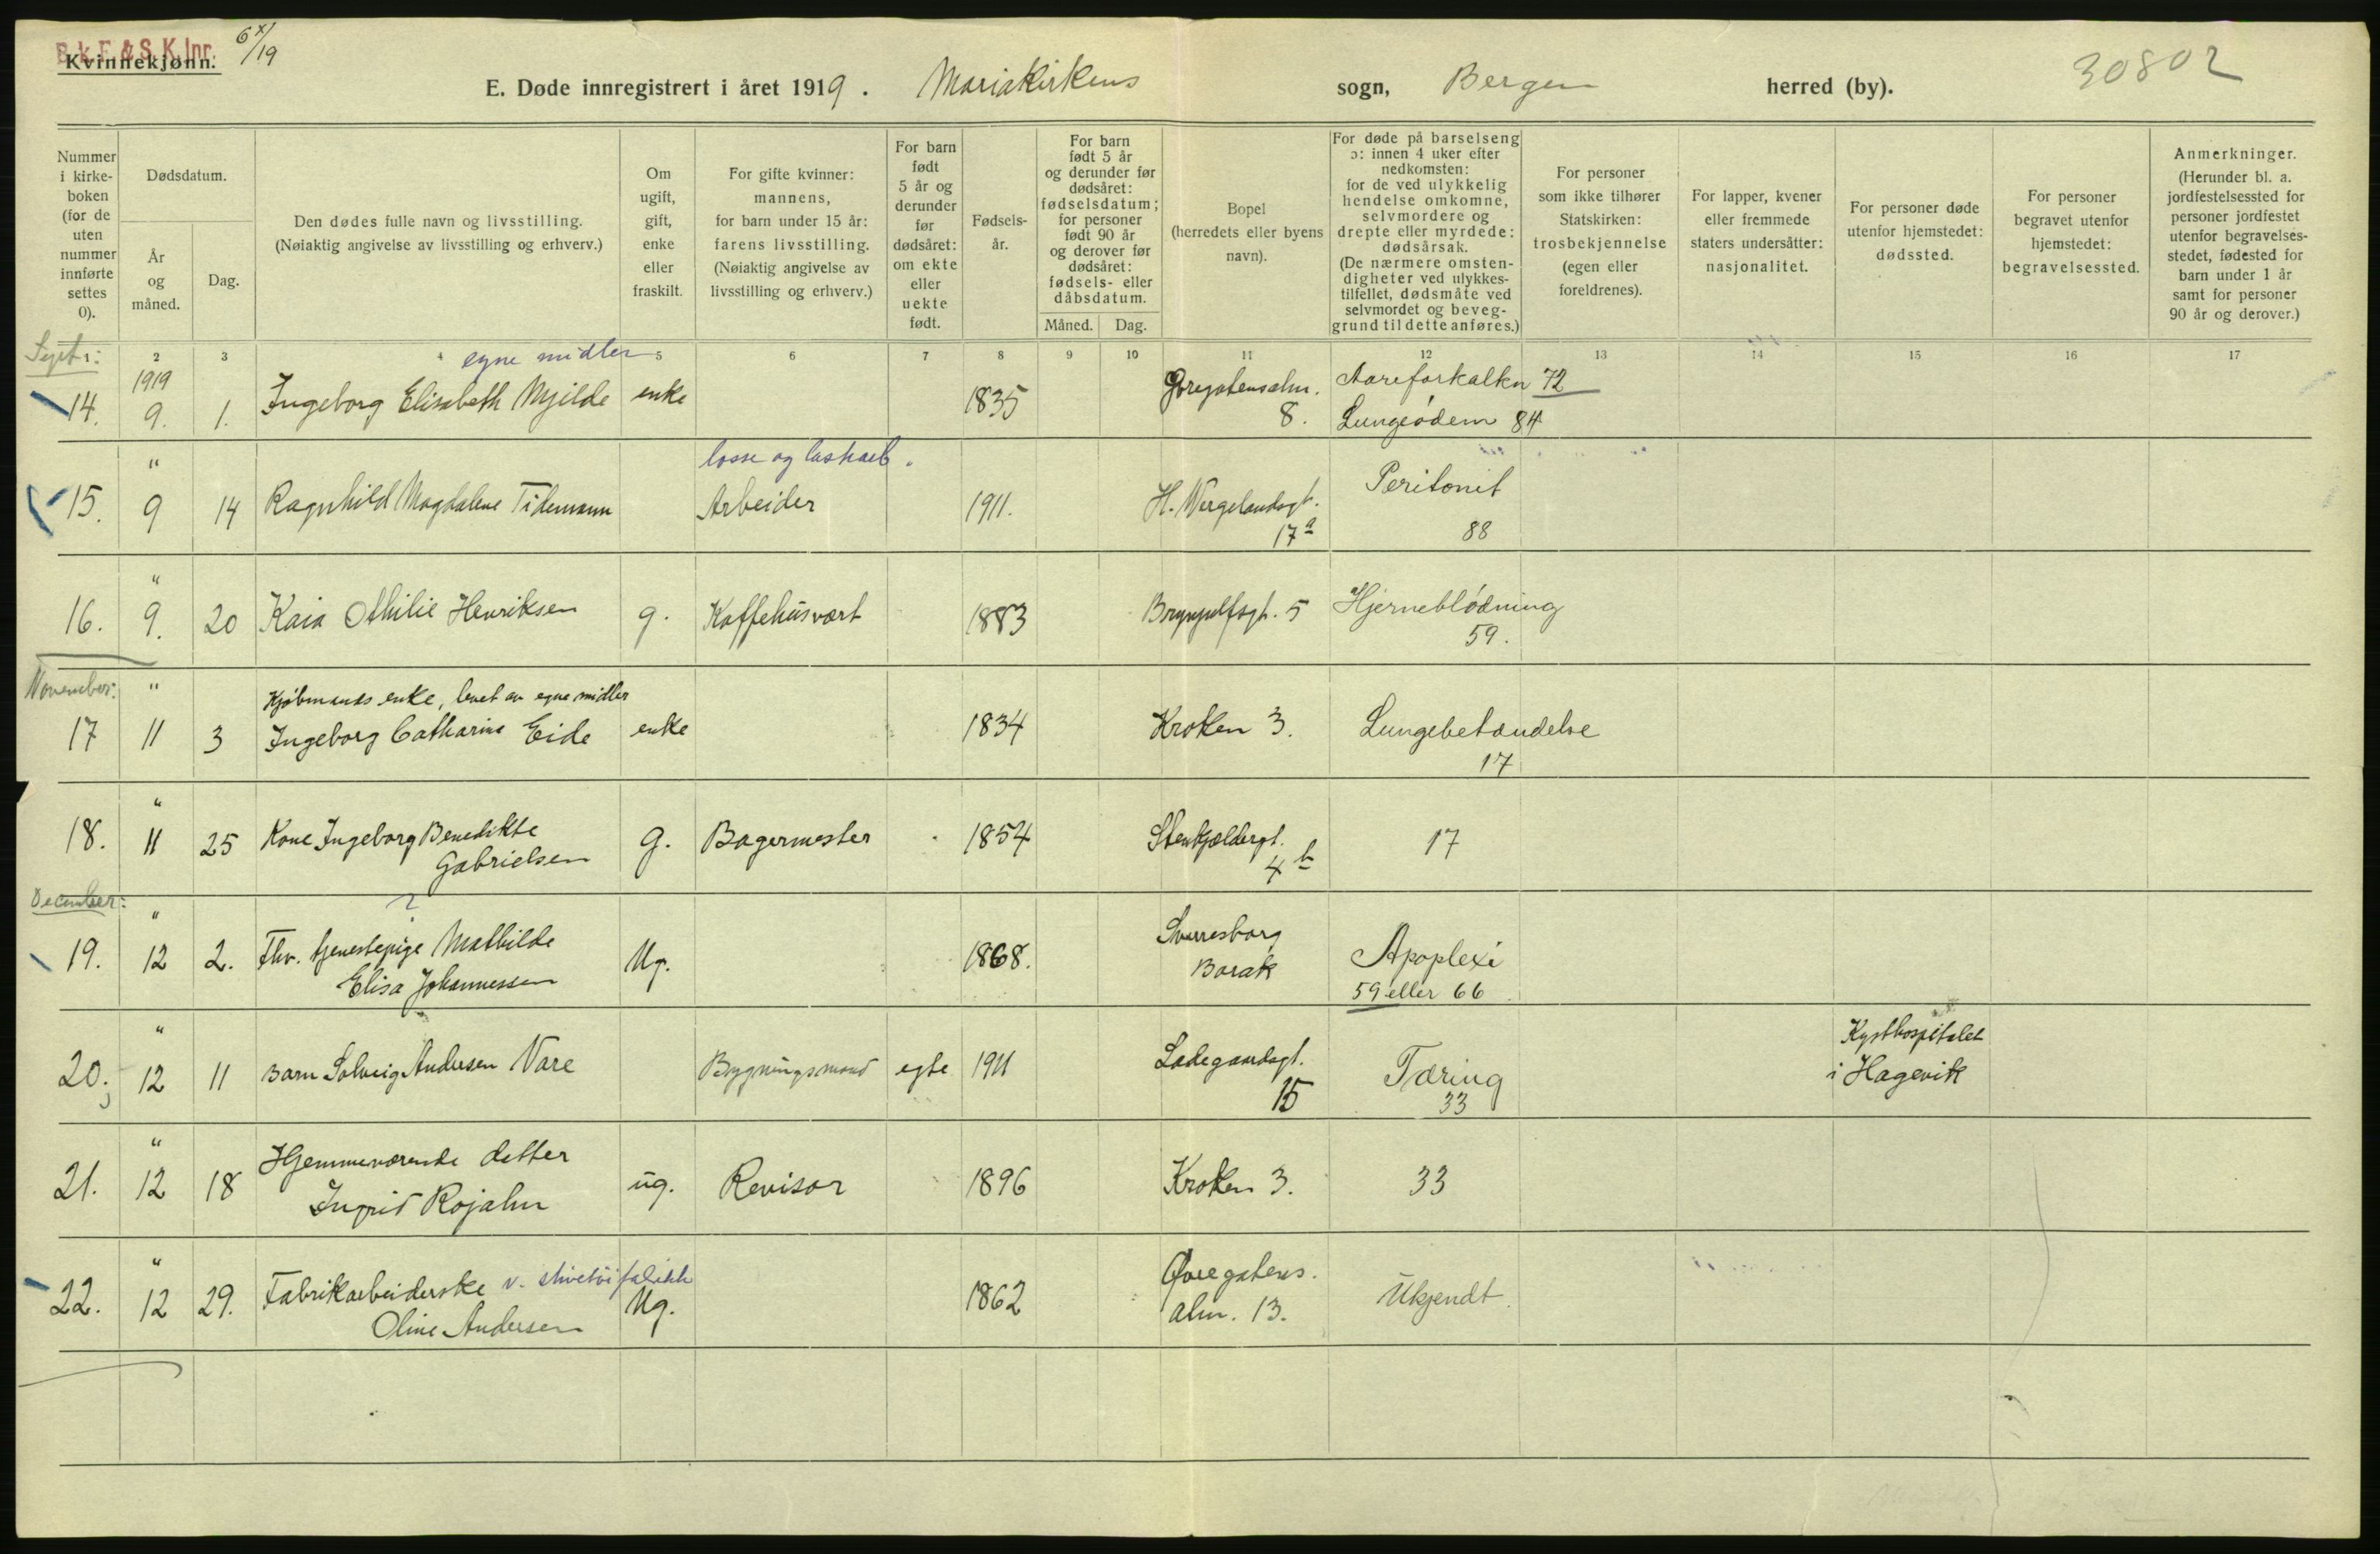 B.k.F. & S.K.lnr. 6 X/19
Kvinnekjønn.
E. Døde innregistrert i året 1919. Mariakirkens sogn, Bergen herred (by).
30802
Nummer i kirkeboken (for de uten nummer innførte settes 0).
Dødsdatum.
År og måned.
Dag.
Den dødes fulle navn og livsstilling.
(Nøiaktig angivelse av livsstilling og erhverv.)
Om ugift, gift, enke eller fraskilt.
For gifte kvinner: mannens, for barn under 15 år: farens livsstilling.
(Nøiaktig angivelse av livsstilling og erhverv.)
For barn født 5 år og derunder før dødsåret: om ekte eller uekte født.
Fødselsår.
For barn født 5 år og derunder før dødsåret: fødselsdatum; for personer født 90 år og derover før dødsåret: fødsels- eller dåbsdatum.
Måned. Dag.
Bopel
(herredets eller byens navn).
For døde på barselseng ɔ: innen 4 uker efter nedkomsten: for de ved ulykkelig hendelse omkomne, selvmordere og drepte eller myrdede: dødsårsak.
(De nærmere omstendigheter ved ulykkestilfellet, dødsmåte ved selvmordet og beveggrund til dette anføres.)
For personer som ikke tilhører Statskirken: trosbekjennelse (egen eller foreldrenes).
For lapper, kvener eller fremmede staters undersåtter: nasjonalitet.
For personer døde utenfor hjemstedet: dødssted.
For personer begravet utenfor hjemstedet: begravelsessted.
Anmerkninger.
(Herunder bl. a. jordfestelsessted for personer jordfestet utenfor begravelsesstedet, fødested for barn under 1 år samt for personer 90 år og derover.)
1 2 3 4 5 6 7 8 9 10 11 12 13 14 15 16 17
Sept:
1919 egne midler
14. 9. 1. Ingeborg Elisabeth Mjilde enke 1835 Øvregatensalm. 8. Aareforkalkn 72
Lungeødem 84
" losse og lastearb.
15. 9 14 Ragnhild Magdalene Tidemann Arbeider 1911. H. Wergelandsgt. 17a Peritonit
88
"
16. 9. 20 Kaia Othilie Henriksen g. Kaffehusvært 1883 Brynjulfsgt. 5 Hjerneblødning
59.
November: "
Kjøbmands enke, levet av egne midler
17 11 3 Ingeborg Catharine Eide enke 1834 Kroken 3. Lungebetændelse
17
"
18. 11 25 Kone Ingeborg Benedikte g. Bagermester 1854 Stenkjældergt. 17
Gabrielsen 4 b
December: "
19. 12 2. Fhv. tjenestepige Mathilde Ug. 1868. Sverresborg Apoplexi
Elisa Johannessen Barak 59 eller 66
"
20. 12 11 Barn Solveig Andersen Vare Bygningsmand egte 1911 Ladegaardsgt. 15 Tæring 33 Kysthospitalet i Hagevik
"
21. 12 18 Hjemmeværende datter ug. Revisor 1896 Kroken 3. 33
Ingrid Rojahn
"
22. 12 29. Fabrikarbeiderske v. stivetøifabrikk Ug. 1862 Øvregatens. Ukjendt.
Oline Andersen alm. 13.